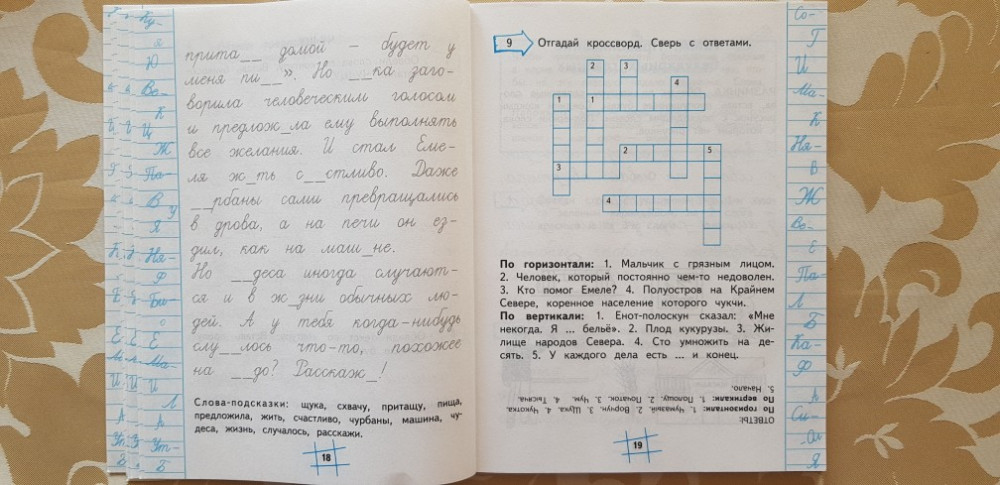 прита__ домой – будет у
меня пи__». Но __ка заго-
ворила человеческим голосом
и предлож_ла ему выполнять
все желания. И стал Еме-
ля ж_ть с__стливо. Даже
__рбаны сами превращались
в дрова, а на печи он ез-
дил, как на маш_не.
Но __деса иногда случают-
ся и в ж_зни обычных лю-
дей. А у тебя когда-нибудь
слу__лось что-то, похожее
на __до? Расскаж_!
Слова-подсказки: щука, схвачу, притащу, пища,
предложила, жить, счастливо, чурбаны, машина, чу-
деса, жизнь, случалось, расскажи.
18
9 Отгадай кроссворд. Сверь с ответами.
2 3
4
1 1
2 5
3
4
По горизонтали: 1. Мальчик с грязным лицом.
2. Человек, который постоянно чем-то недоволен.
3. Кто помог Емеле? 4. Полуостров на Крайнем
Севере, коренное население которого чукчи.
По вертикали: 1. Енот-полоскун сказал: «Мне
некогда. Я ... бельё». 2. Плод кукурузы. 3. Жи-
лище народов Севера. 4. Сто умножить на де-
сять. 5. У каждого дела есть ... и конец.
ОТВЕТЫ:
По горизонтали: 1. Чумазый. 2. Ворчун. 3. Щука. 4. Чукотка.
По вертикали: 1. Полощу. 2. Початок. 3. Чум. 4. Тысяча.
5. Начало.
19
Ку-
я
Ю
Во-
К
Ц
Ж
Па-
В
У
Я
Ня-
Ф
Би-
о
Е
Ма-
И
Л
А
Ут-
Б
Со-
Г
И
Ма-
К
Ня-
В
Ж
Во-
Е
Па-
Л
Б
Ка-
Ф
А
Си-
Я